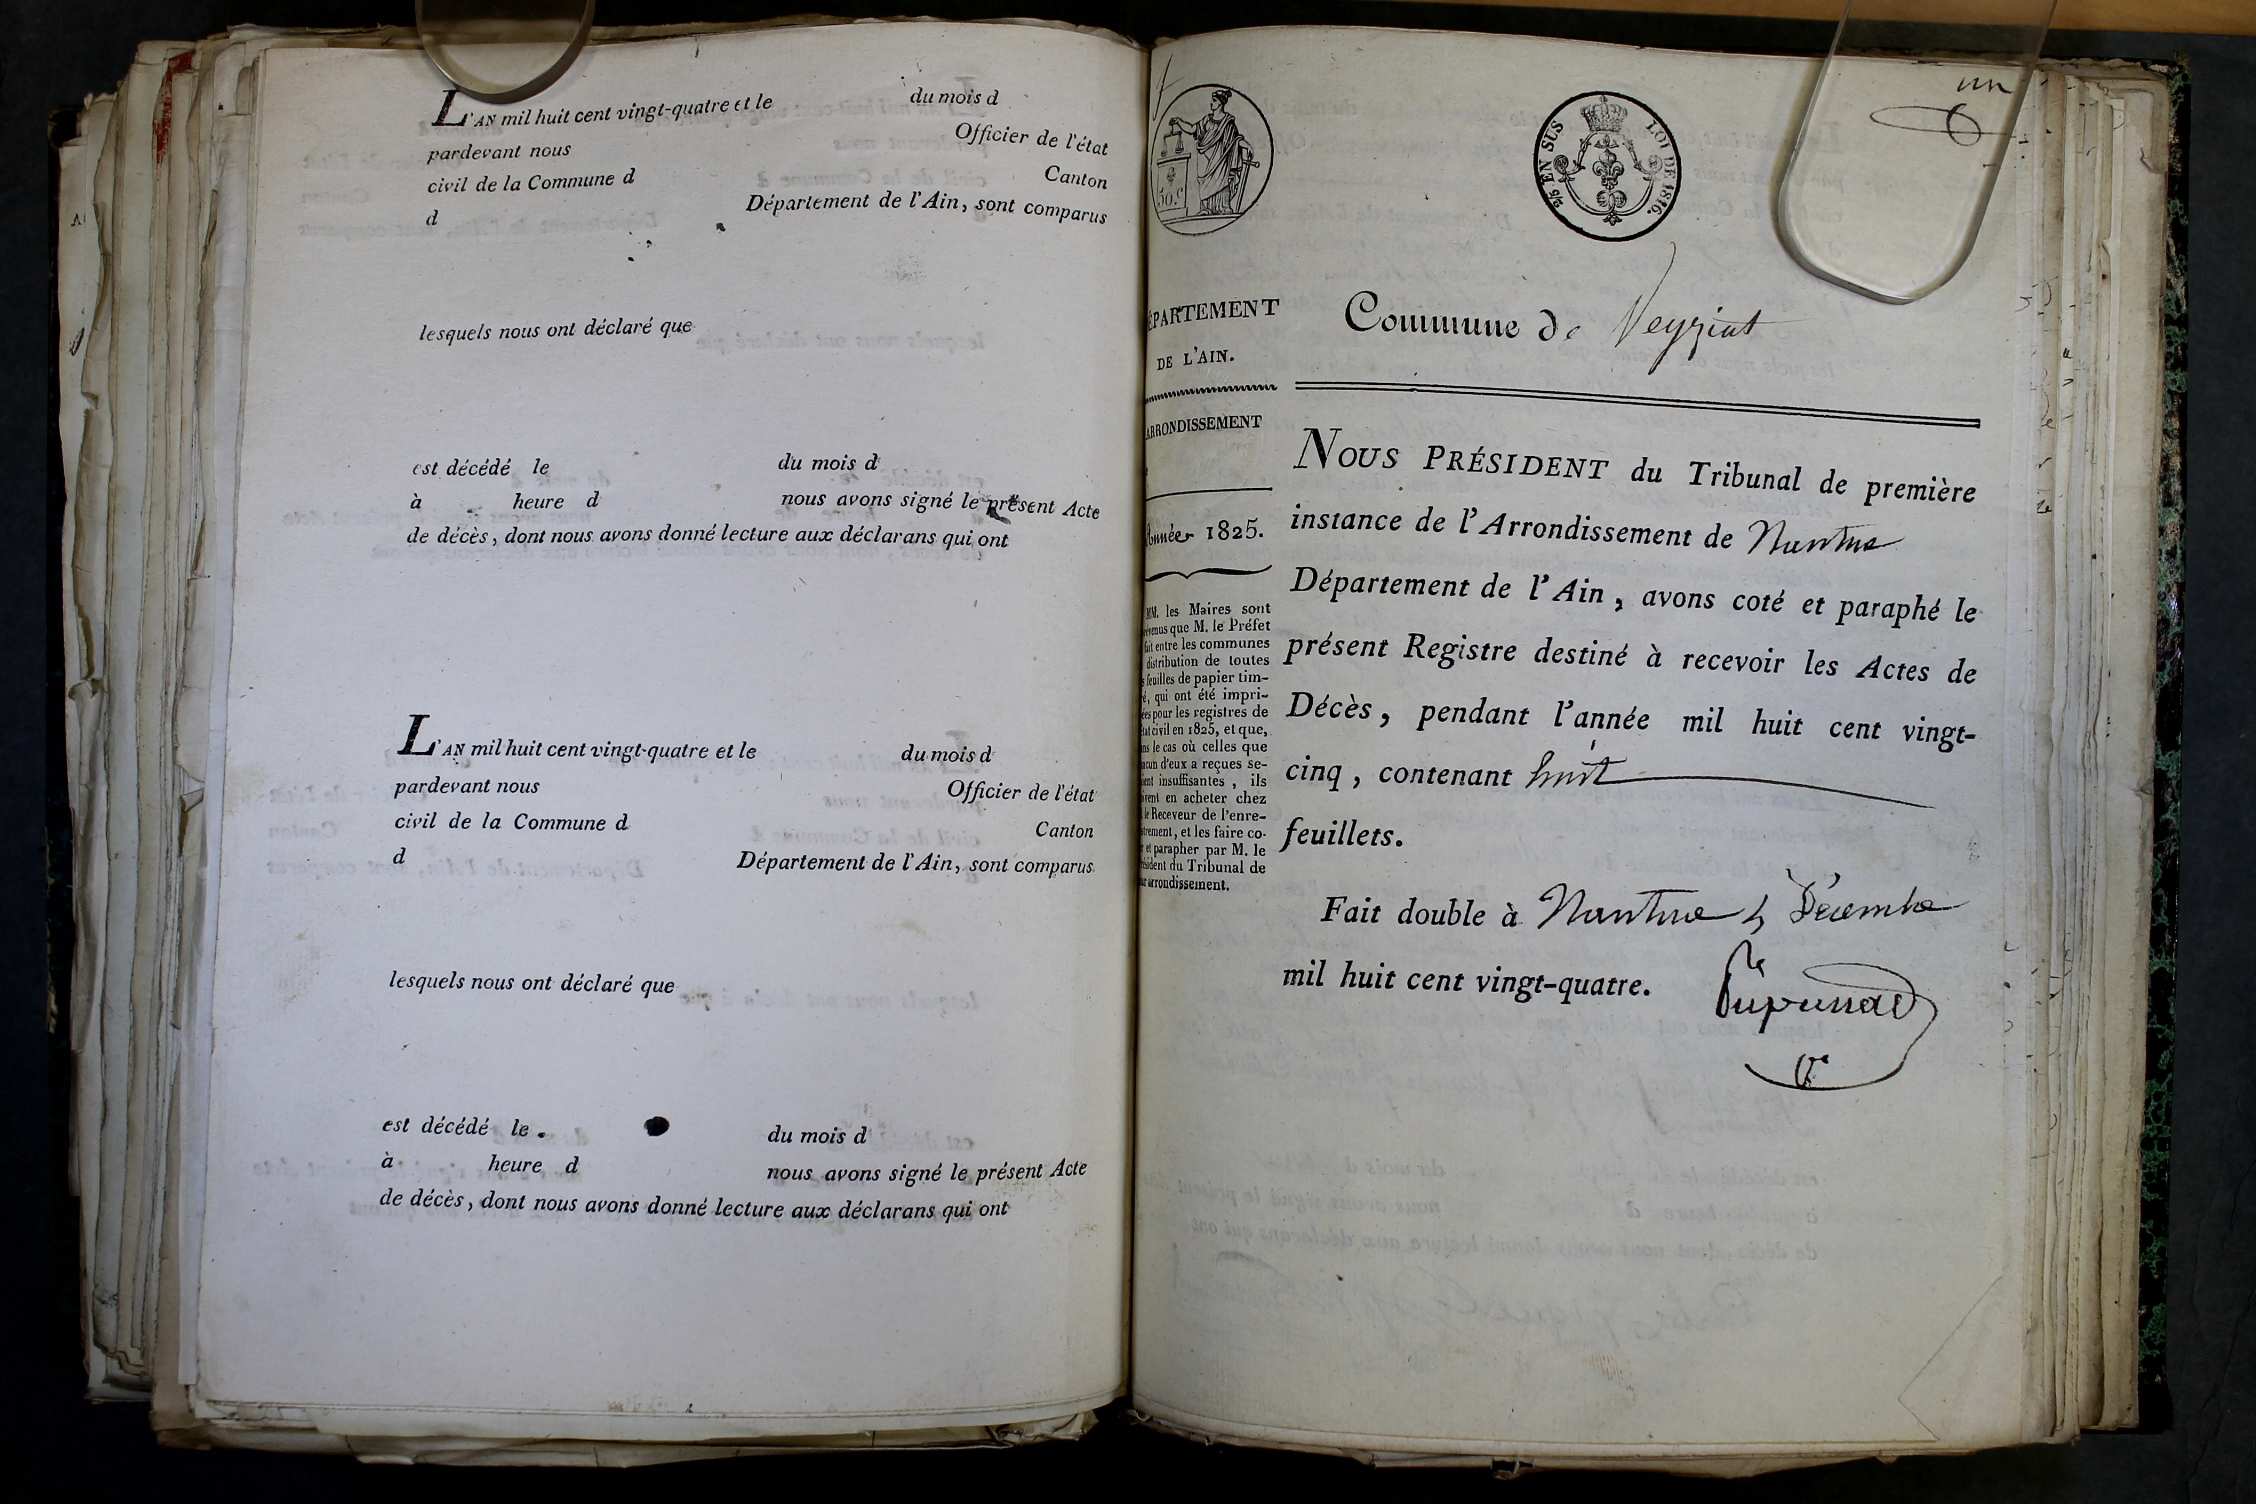 L'AN mil huit cent vingt-quatre et le du mois d
pardevant nous Officier de l'état
civil de la Commune d Canton
d Département de l'Ain, sont comparus
lesquels nous ont déclaré que
est décédé le du mois d
à heure d nous avons signé le présent Acte
de décès, dont nous avons donné lecture aux déclarans qui ont
L'AN mil huit cent vingt-quatre et le du mois d
pardevant nous Officier de l'état
civil de la Commune d Canton
d Département de l'Ain, sont comparus
lesquels nous ont déclaré que
est décédé le du mois d
à heure d nous avons signé le présent Acte
de décès, dont nous avons donné lecture aux déclarans qui ont
un
50.C
EN SUS LOI DE 1816.
ÉPARTEMENT
DE L'AIN.
ARRONDISSEMENT
Année 1825.
MM. les Maires sont
évenus que M. le Préfet
fait entre les communes
distribution de toutes
s feuilles de papier tim-
é, qui ont été impri-
ées pour les registres de
état civil en 1825, et que,
ns le cas où celles que
acun d'eux a reçues se-
ient insuffisantes, ils
ivent en acheter chez
le Receveur de l'enre-
strement, et les faire co-
r et parapher par M. le
ésident du Tribunal de
ur arrondissement.
Commune de Veyziat
NOUS PRÉSIDENT du Tribunal de première
instance de l'Arrondissement de Nantua
Département de l'Ain, avons coté et paraphé le
présent Registre destiné à recevoir les Actes de
Décès, pendant l'année mil huit cent vingt-
cinq, contenant huit
feuillets.
Fait double à Nantua Décembre
mil huit cent vingt-quatre.